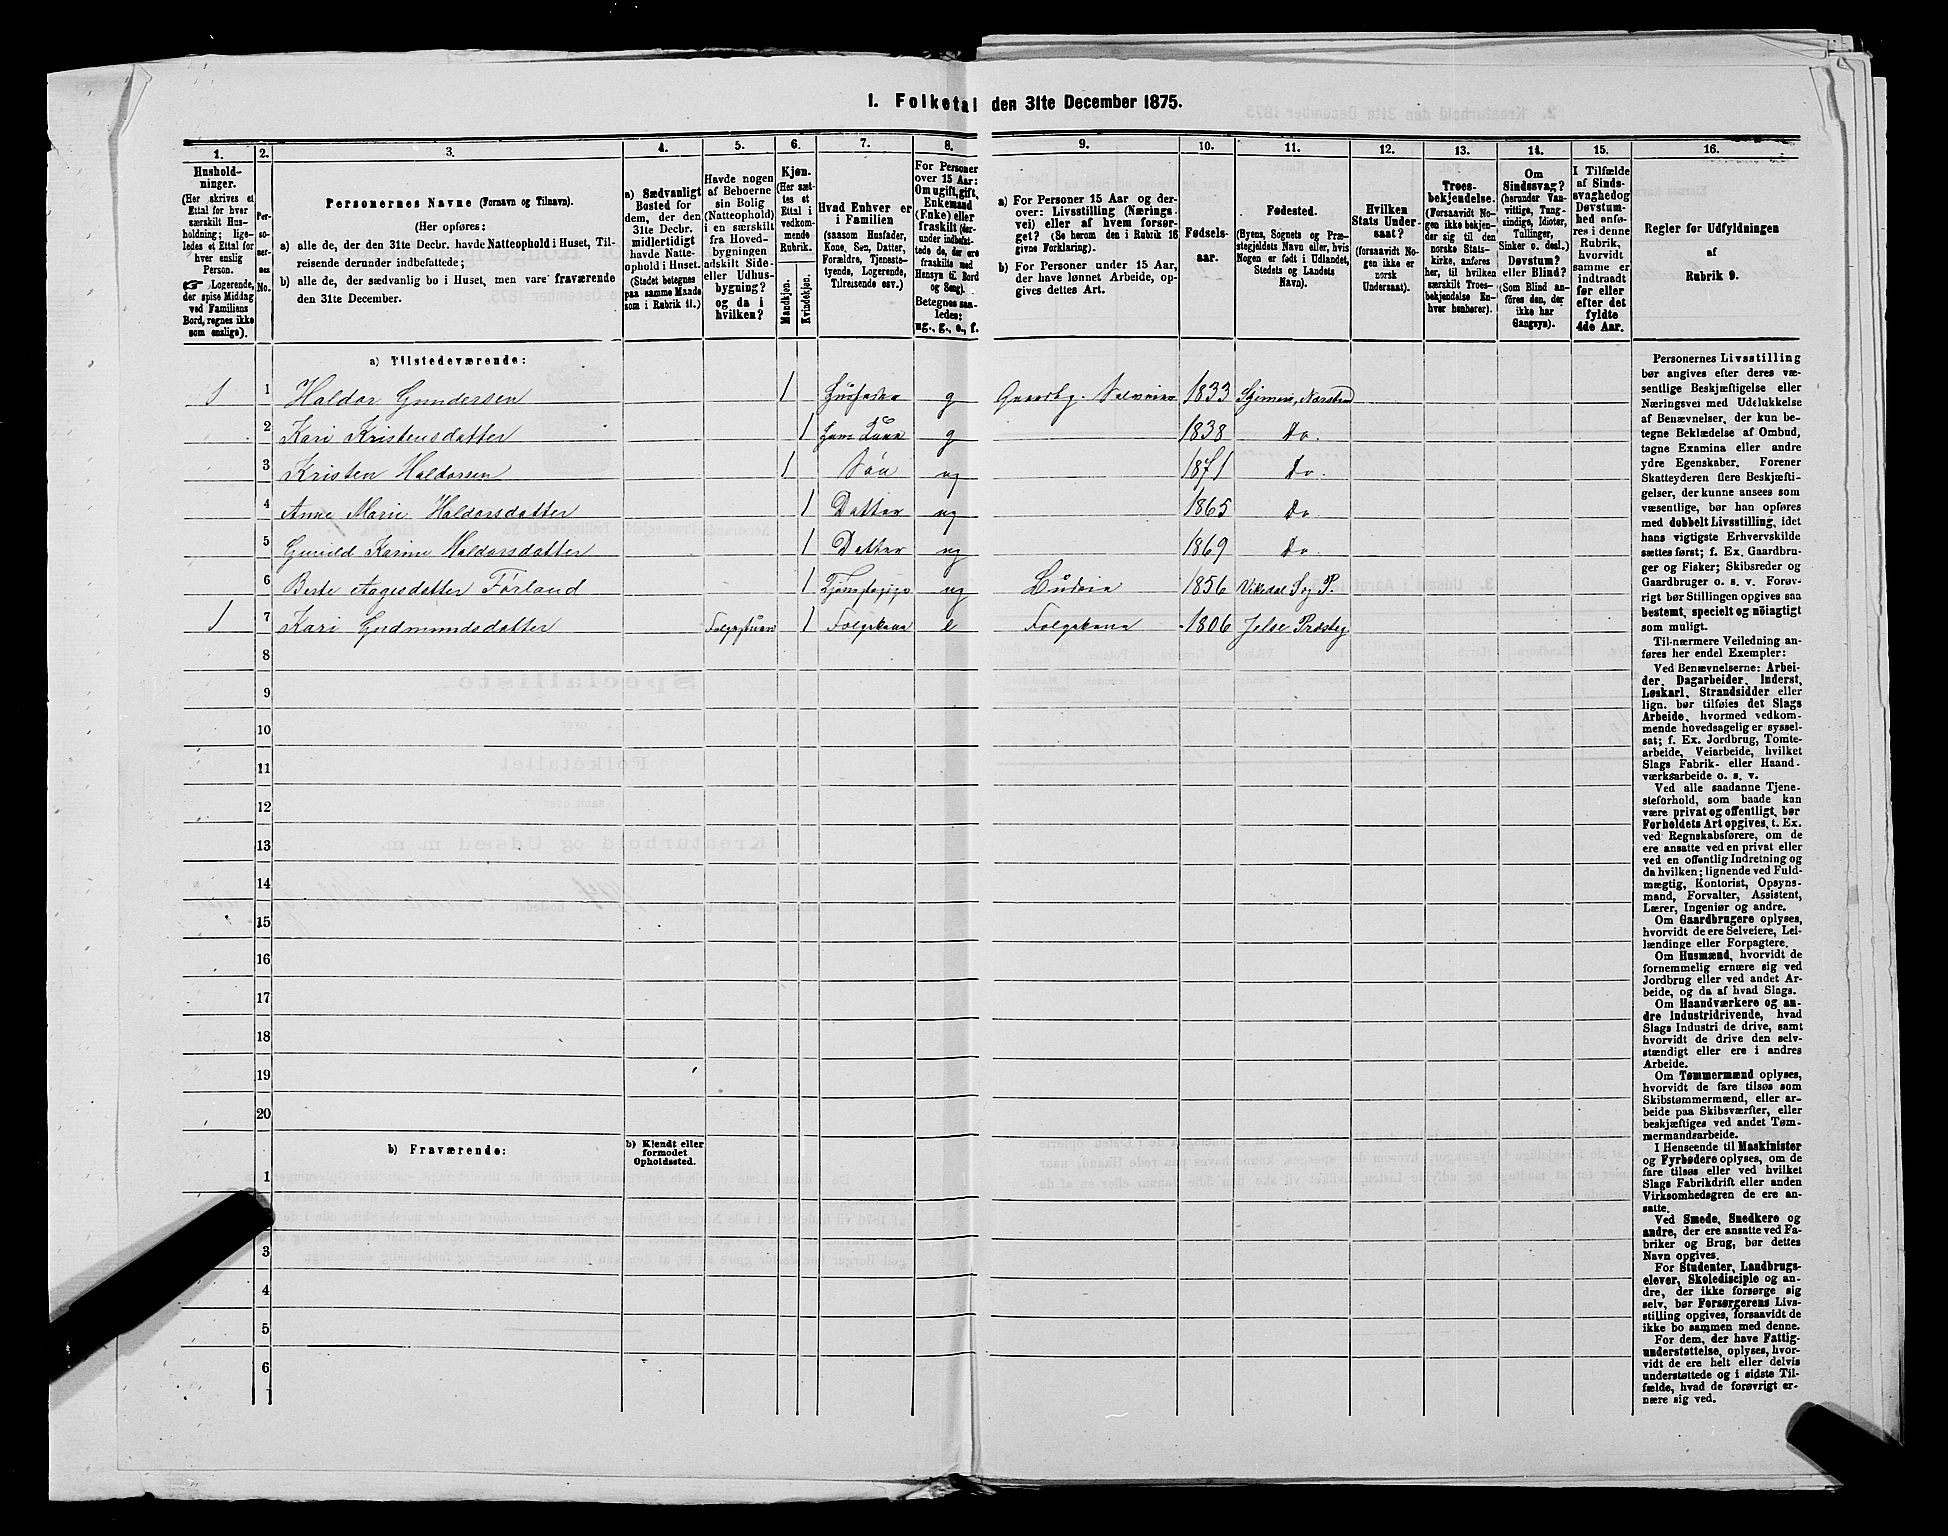 1. Folketal den 31te December 1875.
1. 2. 3. 4. 5. 6. 7. 8. 9. 10. 11. 12. 13. 14. 15. 16.
Hushold-
ninger.
(Her skrives et
Ettal for hver
særskilt Hus-
holdning; lige-
ledes et Ettal for
hver enslig
Person.
☛ Logerende,
der spise Middag
ved Familiens
Bord, regnes ikke
som enslige).
Per-
so-
ner-
nes
No.
Personernes Navne (Fornavn og Tilnavn).
(Her opføres:
a) alle de, der den 31te Decbr. havde Natteophold i Huset, Til-
reisende derunder indbefattede;
b) alle de, der sædvanlig bo i Huset, men vare fraværende
den 31te December.
a) Sædvanligt
Bosted for
dem, der den
31te Decbr.
midlertidigt
havde Natte-
ophold i Huset.
(Stedet betegnes
paa samme Maade
som i Rubrik 11.)
Havde nogen
af Beboerne
sin Bolig
(Natteophold)
i en særskilt
fra Hoved-
bygningen
adskilt Side-
eller Udhus-
bygning?
og da i
hvilken?
Kjøn.
(Her sæt-
tes et
Ettal i
vedkom-
mende
Rubrik.
Mandkjøn.
Kvindekjøn.
Hvad Enhver er
i Familien
(saasom Husfader,
Kone, Søn, Datter,
Forældre, Tjeneste-
tyende, Logerende,
Tilreisende osv.)
For Personer
over 15 Aar:
Om ugift, gift,
Enkemand
(Enke) eller
fraskilt (der-
under indbefat-
tede de, der ere
fraskilte med
Hensyn til Bord
og Seng).
Betegnes saa-
ledes:
ug., g., e., f.
a) For Personer 15 Aar og der-
over: Livsstilling (Nærings-
vei) eller af hvem forsør-
get? (Se herom den i Rubrik 16
givne Forklaring).
b) For Personer under 15 Aar,
der have lønnet Arbeide, op-
gives dettes Art.
Fødsels-
aar.
Fødested.
(Byens, Sognets og Præ-
stegjeldets Navn eller, hvis
Nogen er født i Udlandet,
Stedets og Landets
Navn).
Hvilken
Stats Under-
saat?
(forsaavidt No-
gen ikke er
norsk
Undersaat).
Troes-
bekjendelse.
(Forsaavidt No-
gen ikke bekjen-
der sig til den
norske Stats-
kirke, anføres
her, til hvilken
særskilt Troes-
bekjendelse En-
hver henhører).
Om
Sindssvag?
(herunder Van-
vittige, Tung-
sindige, Idioter,
Tullinger,
Sinker o. desl.)
Døvstum?
eller Blind?
(Som Blind an-
føres den, der
ikke har
Gangsyn).
I Tilfælde
af Sinds-
svaghed og
Døvstum-
hed anfø-
res i denne
Rubrik,
hvorvidt
samme er
indtraadt
før eller
efter det
fyldte
4de Aar.
Regler for Udfyldningen
af
Rubrik 9.
a) Tilstedeværende:
1 1 Haldor Gundersen 1 Husfader g Gaardbg. Selveier 1833 Sjernerø, Narstrand
2 Kari Kristensdatter 1 hans Kone g 1838 Do.
3 Kristen Haldorsen 1 Søn ug 1871 Do.
4 Anne Marie Haldorsdatter 1 Datter ug 1865 Do.
5 Gunild Karine Haldorsdatter 1 Datter ug 1869 Do.
6 Berte Aagesdatter Førland 1 Tjenestepige ug Budeie 1856 Vikedal S. og P.
1 7 Kari Gudmundsdatter Folgestuen 1 Folgekone e Folgekone 1806 Jelse Præsteg
8
9
10
11
12
13
14
15
16
17
18
19
20
b) Fraværende:
b) Kjendt eller
formodet
Opholdssted.
1
3
4
5
6
Personernes Livsstilling
bør angives efter deres væ-
sentlige Beskjæftigelse eller
Næringsvei med Udelukkelse
af Benævnelser, der kun be-
tegne Beklædelse af Ombud,
tagne Examina eller andre
ydre Egenskaber. Forener
Skatteyderen flere Beskjæfti-
gelser, der kunne ansees som
væsentlige, bør han opføres
med dobbelt Livsstilling, idet
hans vigtigste Erhvervskilde
sættes først; f. Ex. Gaardbru-
ger og Fisker; Skibsreder og
Gaardbruger o. s. v. Forøv-
rigt bør Stillingen opgives saa
bestemt, specielt og nöiagtigt
som muligt.
Til nærmere Veiledning an-
føres her endel Exempler:
Ved Benævnelserne: Arbei-
der, Dagarbeider, Inderst,
Løskarl, Strandsidder eller
lign. bør tilføies det Slags
Arbeide, hvormed vedkom-
mende hovedsagelig er syssel-
sat; f. Ex. Jordbrug, Tomte-
arbeide, Veiarbeide, hvilket
Slags Fabrik- eller Haand-
værksarbeide o. s. v.
Ved alle saadanne Tjene-
steforhold, som baade kan
være privat og offentligt, bør
Forholdets Art opgives, t. Ex.
ved Regnskabsførere, om de
ere ansatte ved en privat eller
ved en offentlig Indretning og
da hvilken; lignende ved Fuld-
mægtig, Kontorist, Opsyns-
mand, Forvalter, Assistent,
Lærer, Ingeniør og andre.
Om Gaardbrugere oplyses,
hvorvidt de ere Selveiere, Lei-
lændinge eller Forpagtere.
Om Husmænd, hvorvidt de
fornemmelig ernære sig ved
Jordbrug eller ved andet Ar-
beide, og da af hvad Slags.
Om Haandværkere og an-
dre Industridrivende, hvad
Slags Industri de drive, samt
hvorvidt de drive den selv-
stændigt eller ere i andres
Arbeide.
Om Tømmermænd oplyses,
hvorvidt de fare tilsøs som
Skibstømmermænd, eller ar-
beide paa Skibsværfter, eller
beskjæftiges ved andet Tøm-
mermandsarbeide.
I Henseende til Maskinister
og Fyrbødere oplyses, om de
fare tilsøs eller ved hvilket
Slags Fabrikdrift eller anden
Virksomhedsgren de ere an-
satte.
Ved Smede, Snedkere og
andre, der ere ansatte ved Fa-
briker og Brug, bør dettes
Navn opgives.
For Studenter, Landbrugs-
elever, Skoledisciple og an-
dre, der ikke forsørge sig
selv, bør Forsørgerens Livs-
stilling opgives, forsaavidt de
ikke bo sammen med denne.
For dem, der have Fattig-
understøttelse, oplyses, hvor-
vidt de ere helt eller delvis
understøttede og i sidste Til-
fælde, hvad de forøvrigt er-
nære sig ved.